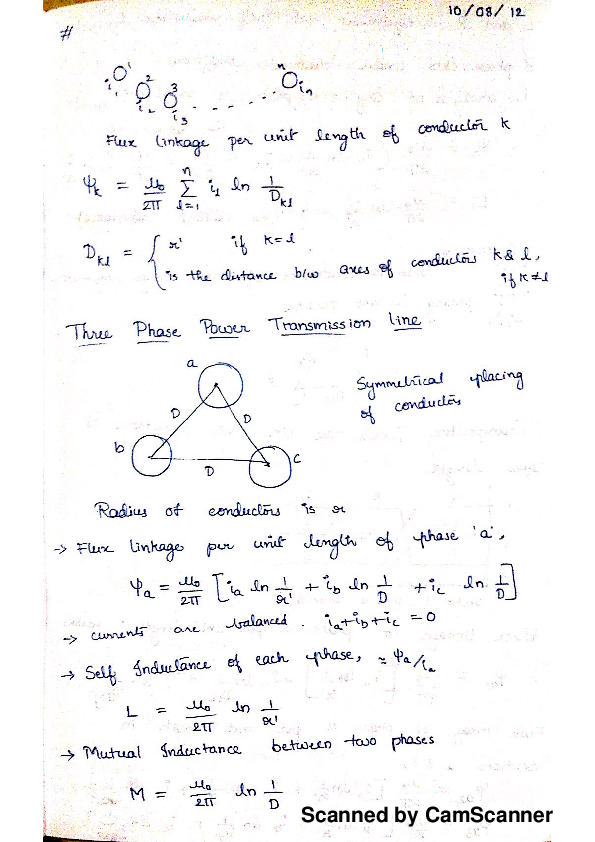 10/08/12
#
1 2 3 n
i₁ i₂ i₃ - - - . . . . iₙ
Flux linkage per unit length of conductor k
Ψₖ = μ₀/2π Σ(l=1 to n) iₗ ln 1/Dₖₗ
Dₖₗ = { r' if k=l
is the distance b/w axes of conductors k & l, if k≠l
Three Phase Power Transmission line
a
D D
b D c
Symmetrical placing
of conductors
Radius of conductors is r
→ Flux linkage per unit length of phase 'a',
Ψa = μ₀/2π [ia ln 1/r' + ib ln 1/D + ic ln 1/D]
→ currents are balanced. ia+ib+ic = 0
→ Self Inductance of each phase, = Ψa/ia
L = μ₀/2π ln 1/r'
→ Mutual Inductance between two phases
M = μ₀/2π ln 1/D
Scanned by CamScanner